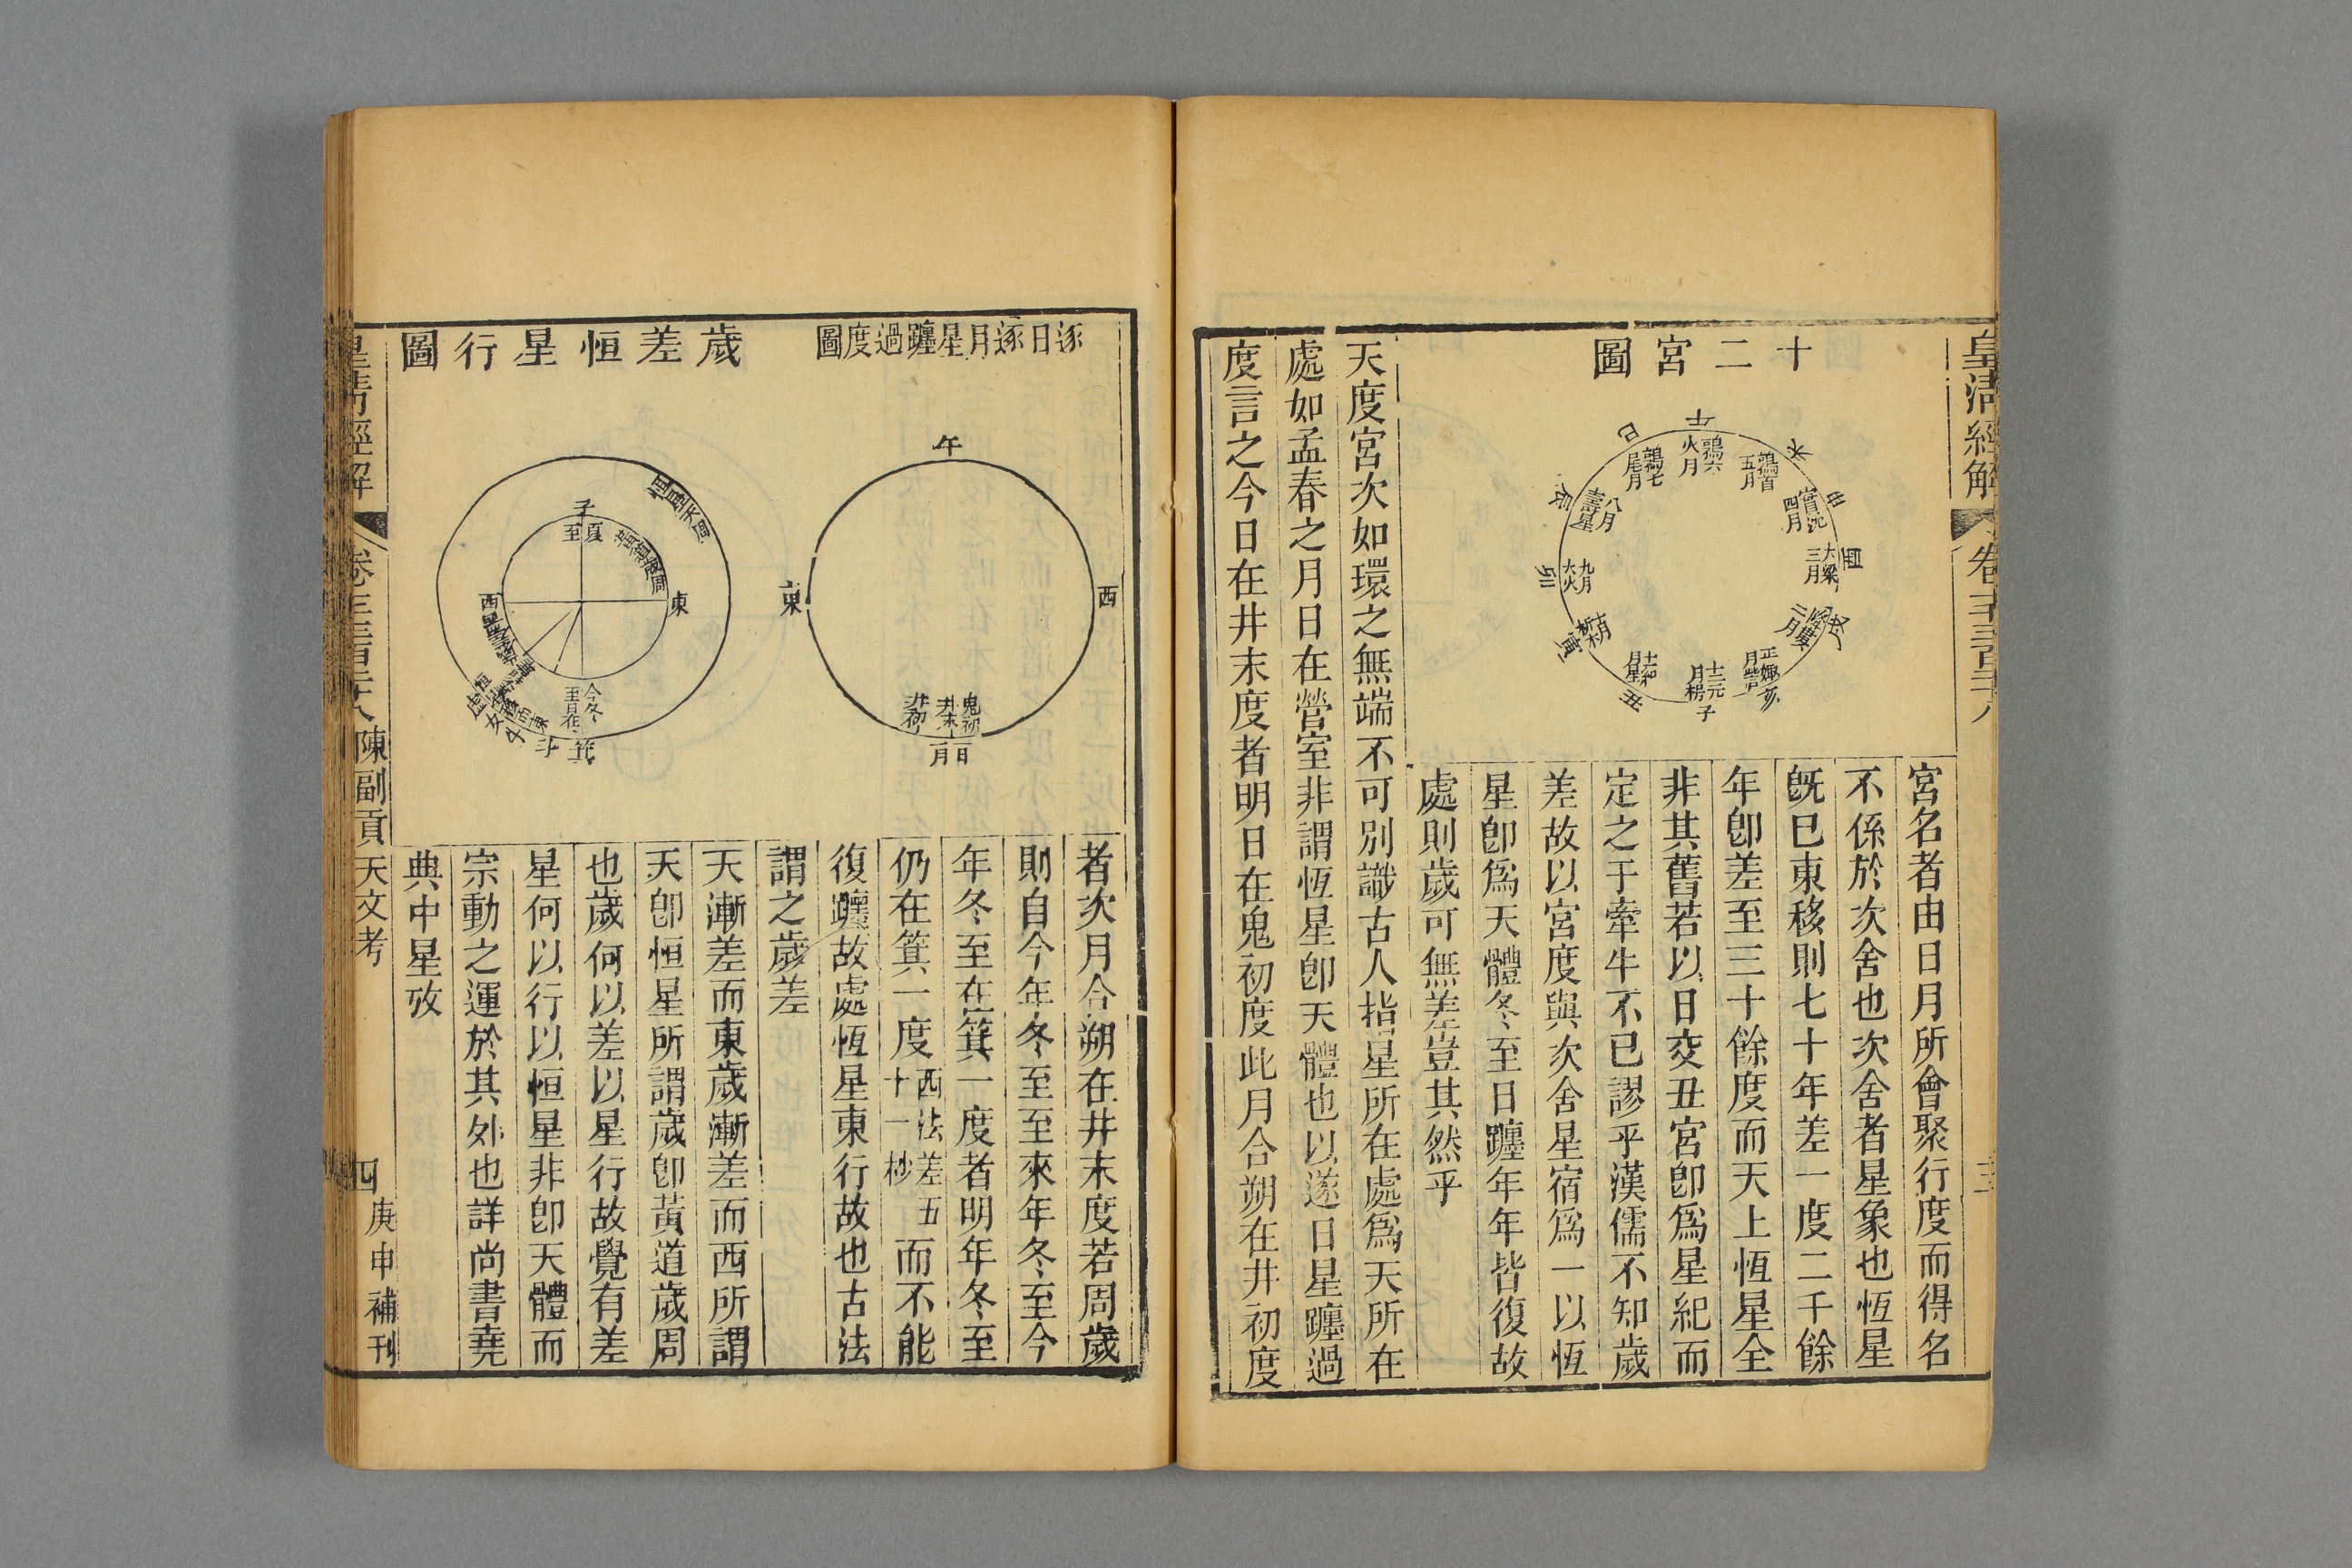 皇淸經解
十二宮圖
午
鶉火六月
未
鶉首五月
申
實沈四月
酉
大梁三月
戌
降婁二月
亥
子
丑
寅
卯
大火九月
辰
壽星八月
巳
鶉尾七月
宮名者由日月所會聚行度而得名
不係於次舍也次舍者星象也恆星
旣已東移則七十年差一度二千餘
年卽差至三十餘度而天上恆星全
非其舊若以日交丑宮卽爲星紀而
定之于牽牛不已謬乎漢儒不知歲
差故以宮度與次舍星宿爲一以恆
星卽爲天體冬至日躔年年皆復故
處則歲可無差豈其然乎
天度宮次如環之無端不可別識古人指星所在處爲天所在
處如孟春之月日在營室非謂恆星卽天體也以逐日星躔過
度言之今日在井末度者明日在鬼初度此月合朔在井初度
逐日逐月星躔過度圖
午
西
東
鬼初
井末
井初
日
月
歲差恒星行圖
恒星天周
黃道歲周
子
夏至
東
西
今冬至日在
箕
斗
牛
女
虛
者次月合朔在井末度若周歲
則自今年冬至至來年冬至今
年冬至在箕一度者明年冬至
仍在箕一度西法差五十一秒而不能
復躔故處恆星東行故也古法
謂之歲差
天漸差而東歲漸差而西所謂
天卽恒星所謂歲卽黃道歲周
也歲何以差以星行故覺有差
星何以行以恒星非卽天體而
宗動之運於其外也詳尚書堯
典中星攷
皇淸經解
陳副貢天文考
四
庚申補刊